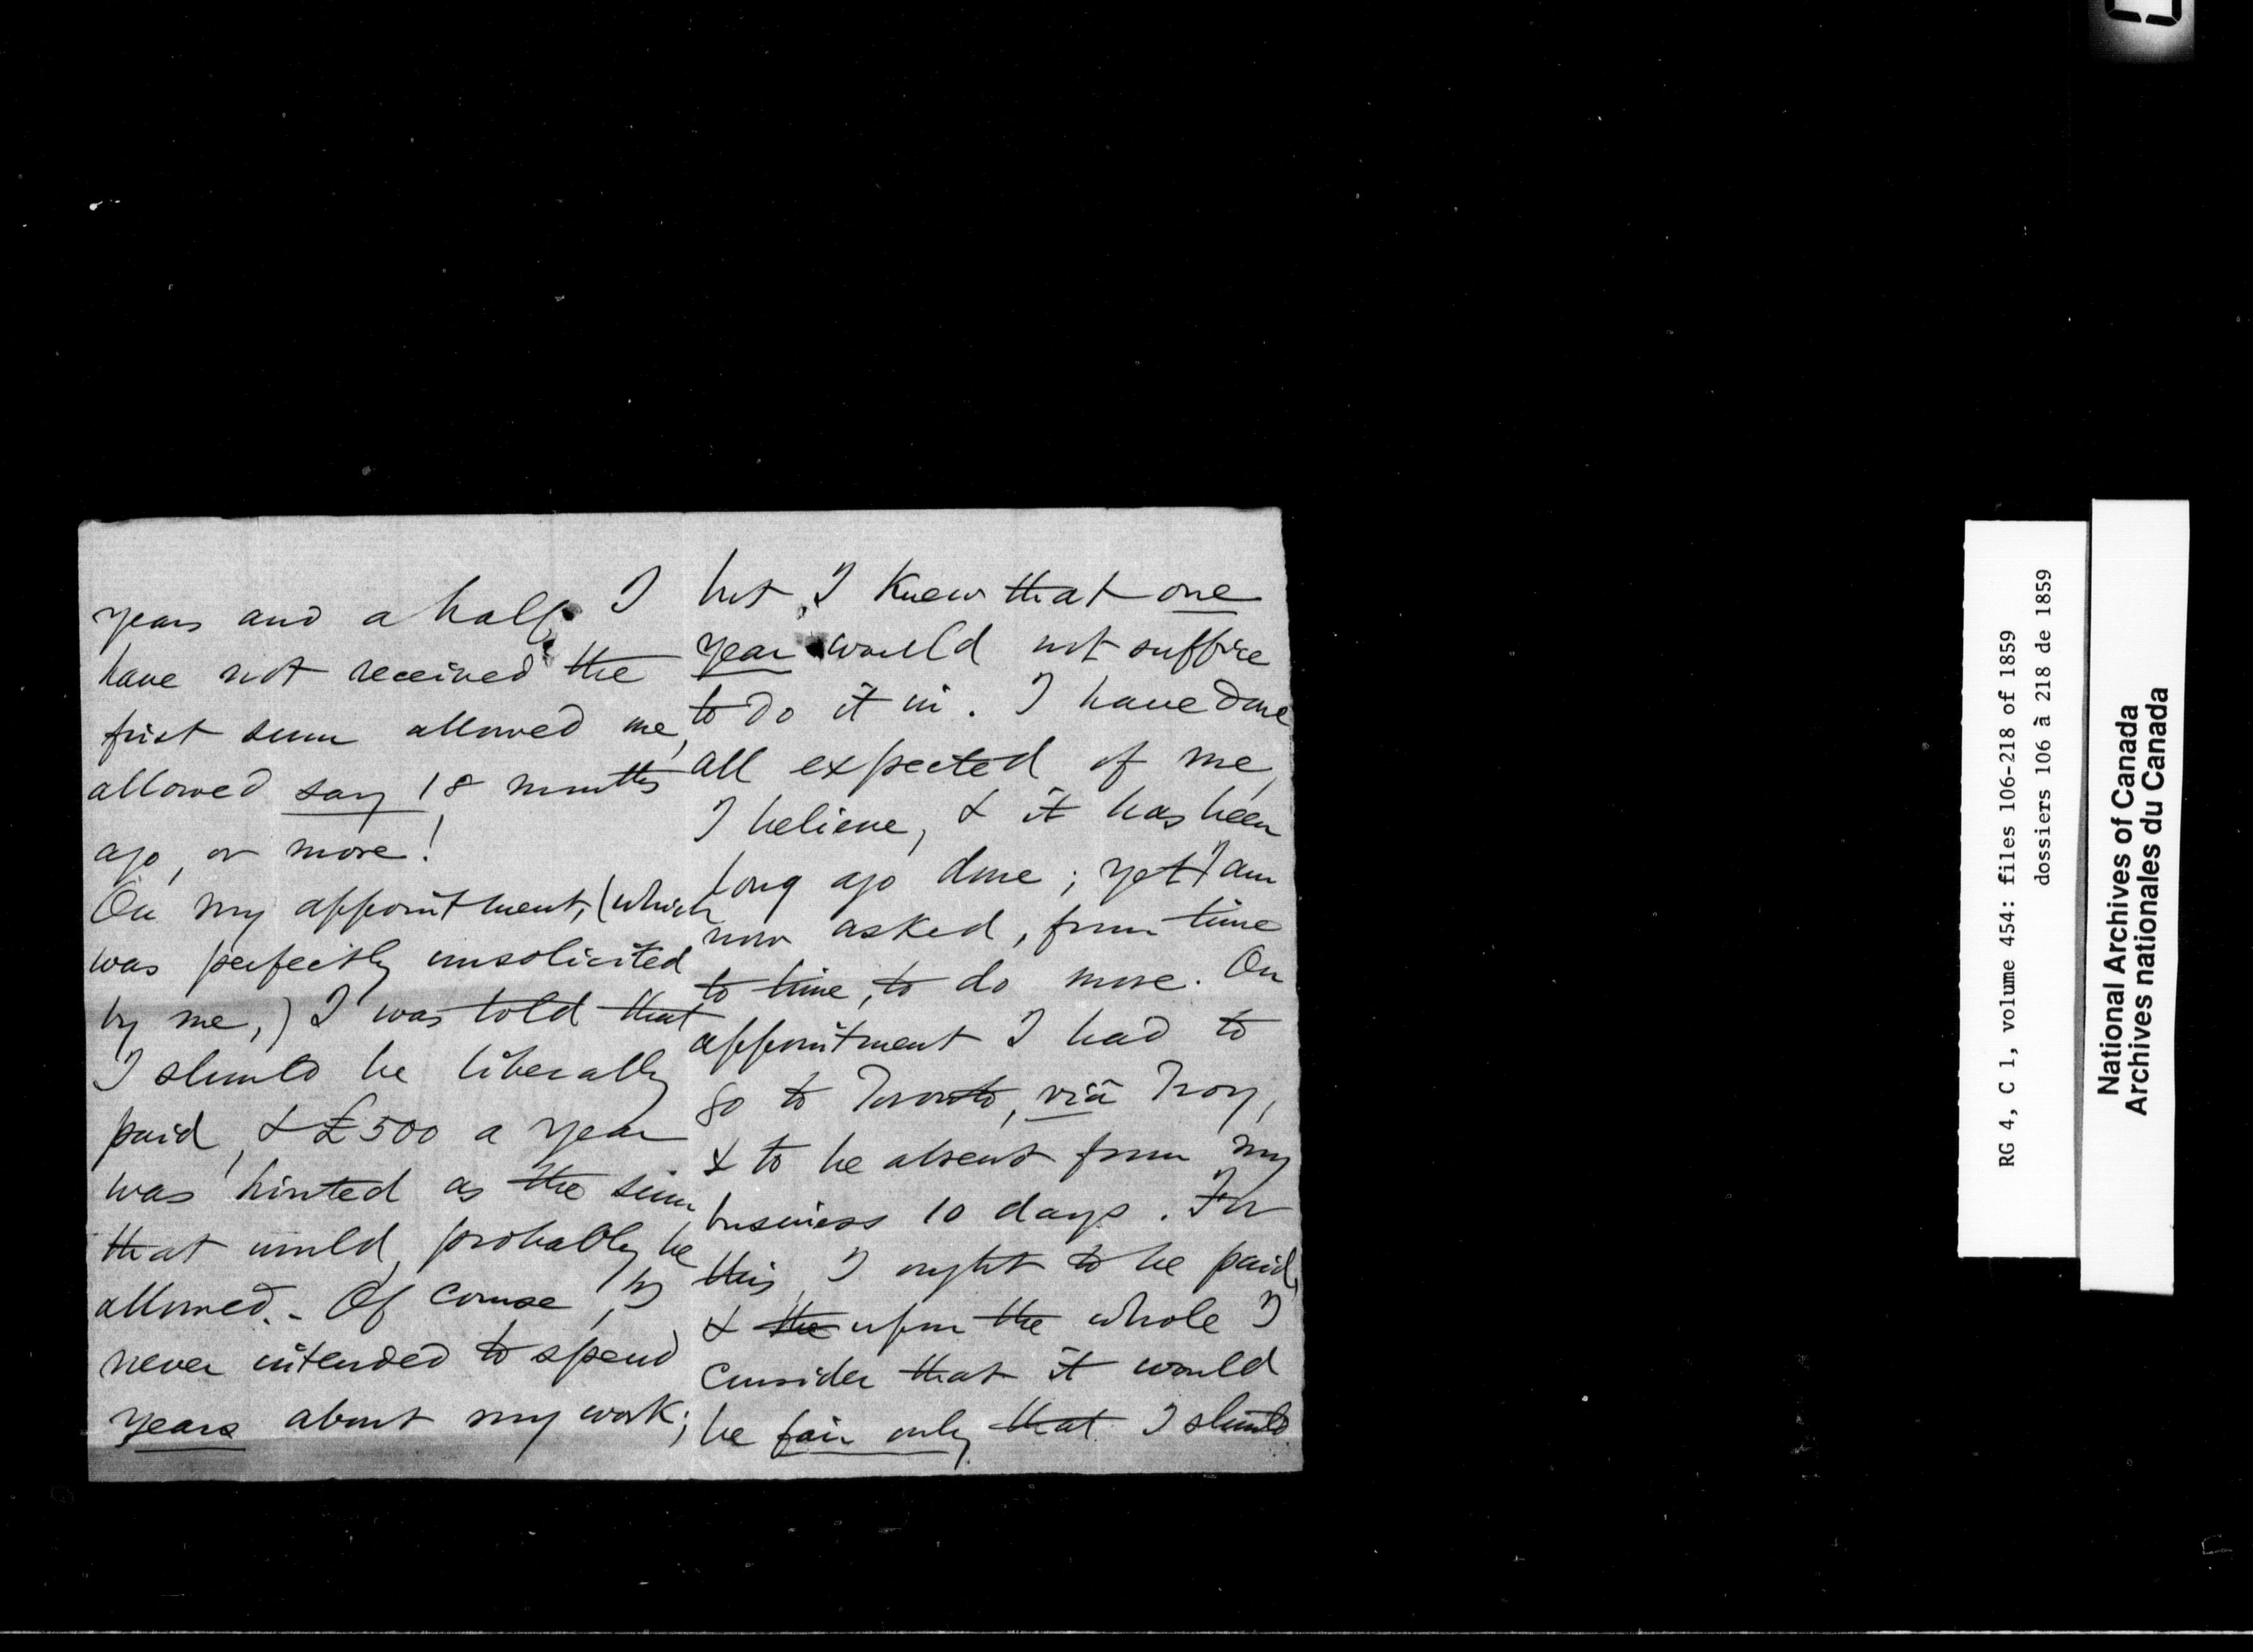 years and a half. I
have not received the
first sum allowed me,
allowed say 18 months
ago, or more!
On my appointment, (which
was perfectly unsolicited
by me,) I was told that
I should be liberally
paid, & £500 a year
was hinted as the sum
that would, probably, be
allowed. - Of course, I
never intended to spend
years about my work;
but, I knew that one
year would not suffice
to do it in. I have done
all expected of me,
I believe, & it has been
long ago done; yet I am
now asked, from time
to time, to do more. On
appointment I had to
go to Toronto, viâ Troy,
& to be absent from my
business 10 days. For
this, I ought to be paid,
& the upon the whole I
consider that it would
be fair only that I should
RG 4, C 1, volume 454: files 106-218 of 1859
dossiers 106 à 218 de 1859
National Archives of Canada
Archives nationales du Canada